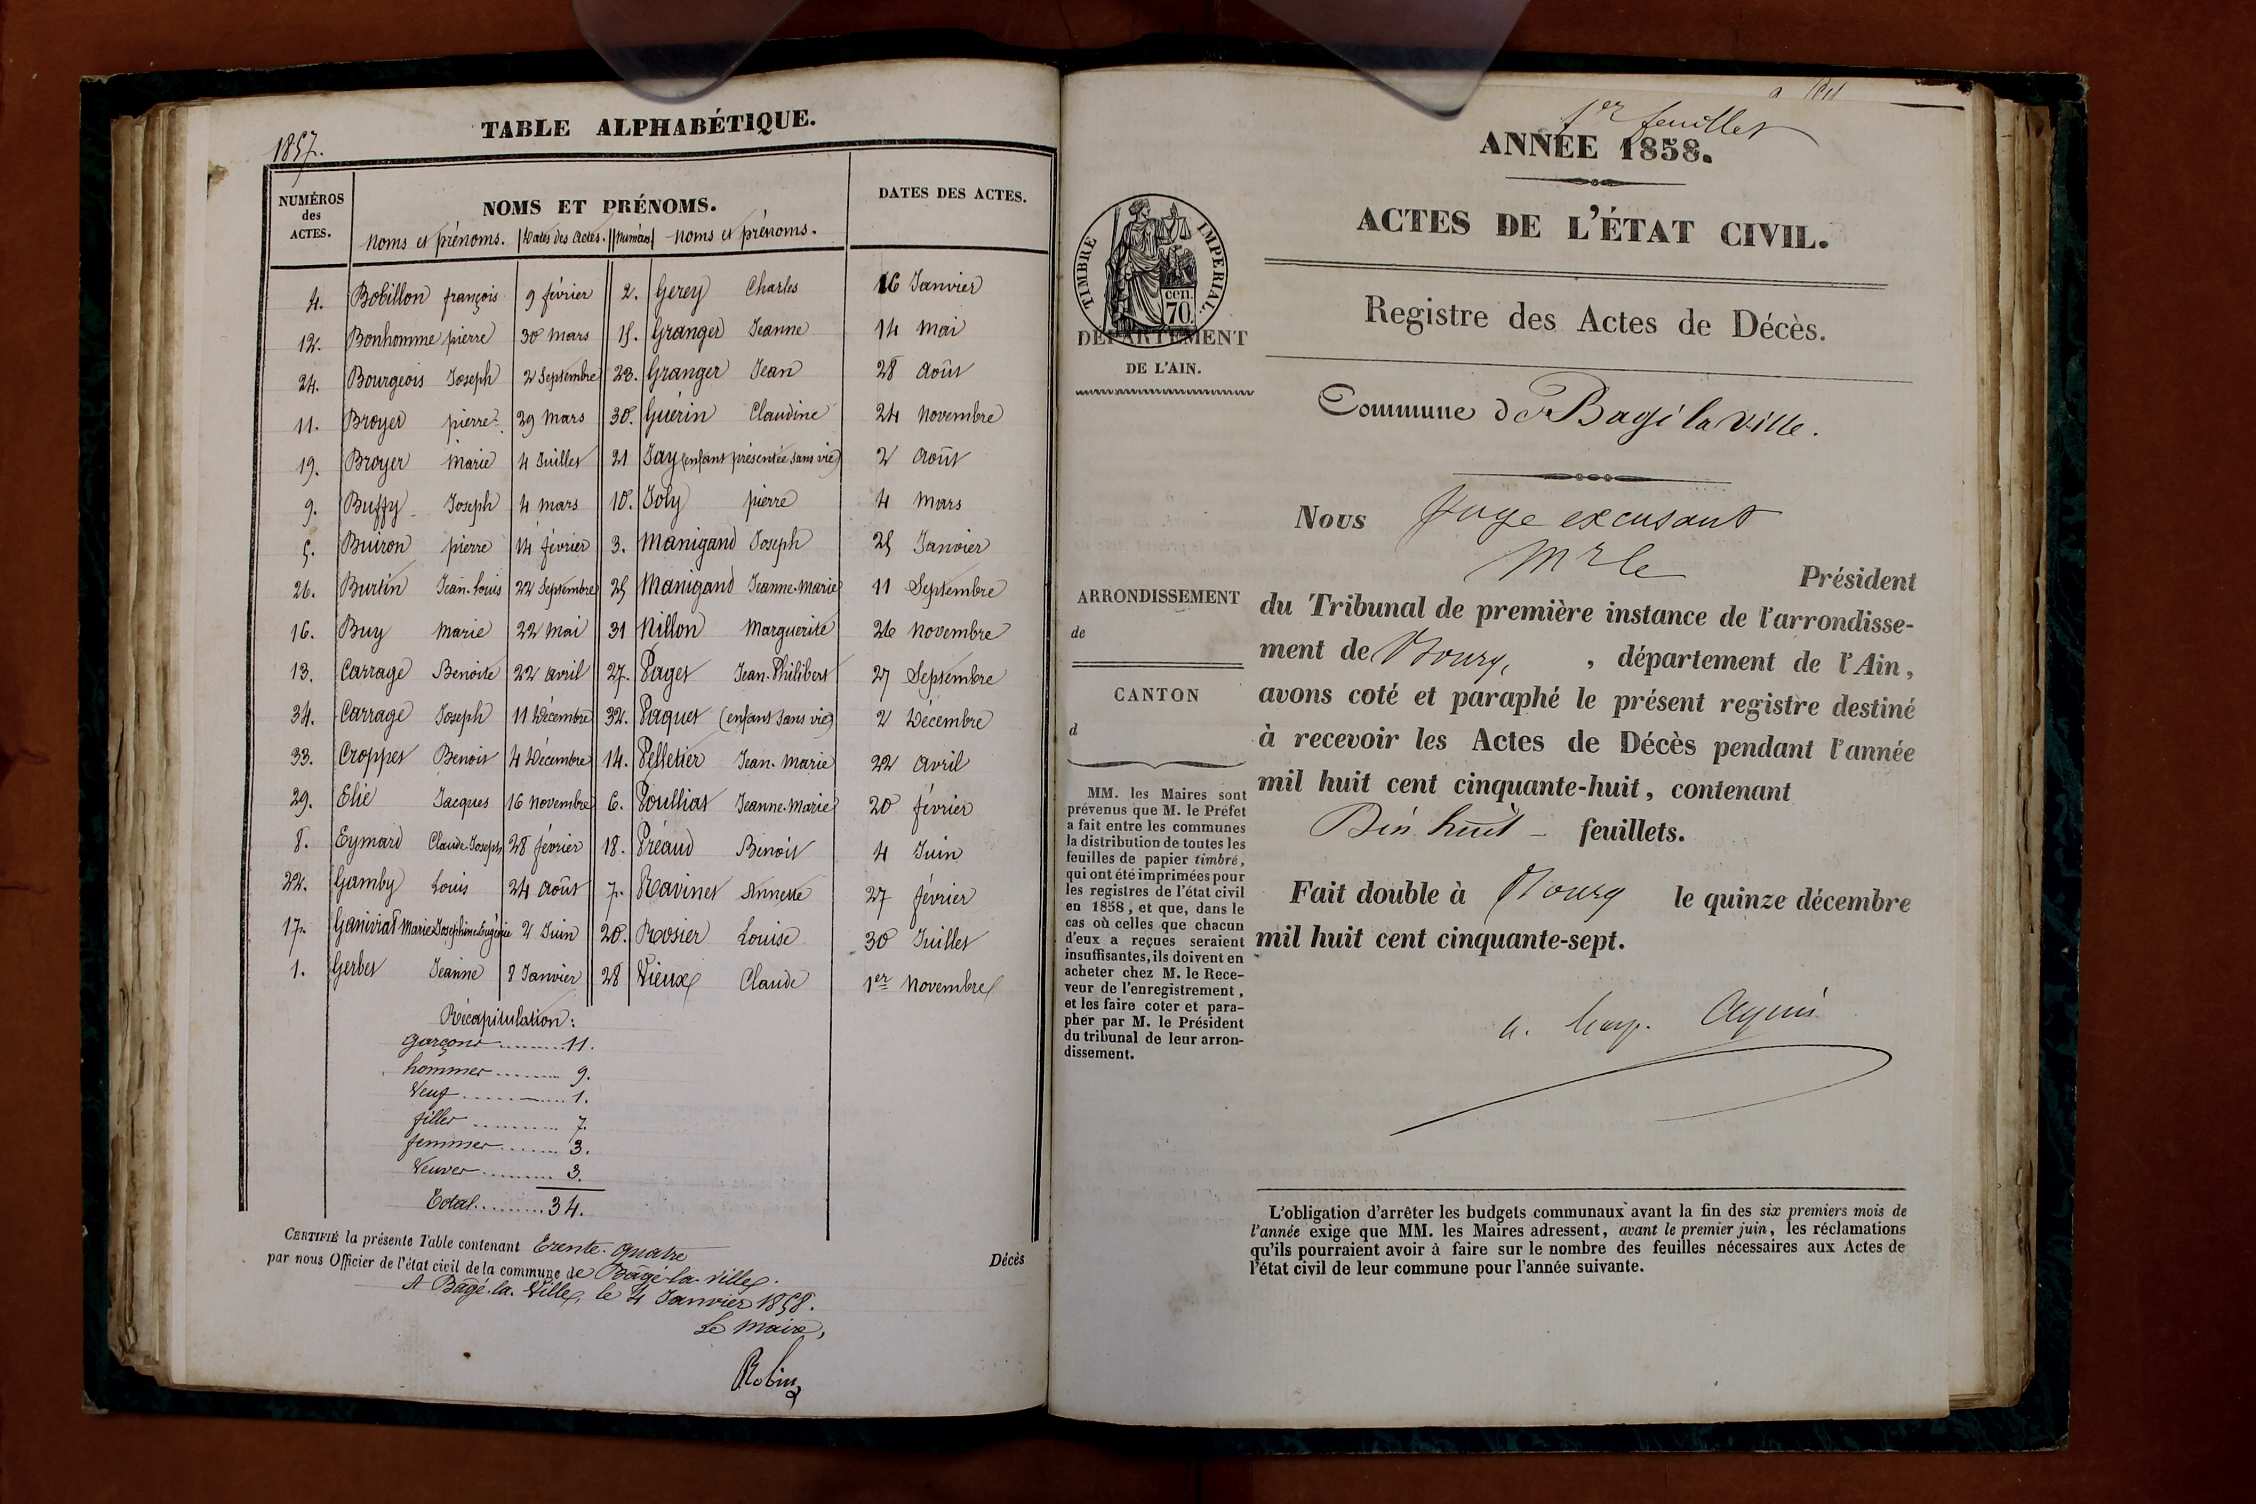 1857.
TABLE ALPHABÉTIQUE.
NUMÉROS des ACTES.
NOMS ET PRÉNOMS.
DATES DES ACTES.
Noms et prénoms. Dates des Actes. Numéros Noms et prénoms.
4. Bobillon françois 9 février 2. Gerey Charles 16 Janvier
12. Bonhomme pierre 30 mars 15. Granger Jeanne 14 mai
24. Bourgeois Joseph 2 Septembre 23. Granger Jean 28 Août
11. Broyer pierre 29 mars 30. Guérin Claudine 24 novembre
19. Broyer Marie 4 Juillet 21 Jay (enfant présentée sans vie) 2 Août
9. Buffy Joseph 4 mars 10. Joly pierre 4 mars
5. Buiron pierre 14 février 3. Manigand Joseph 25 Janvier
26. Burtin Jean-Louis 22 Septembre 25 Manigand Jeanne-Marie 11 Septembre
16. Buy Marie 22 mai 31 Nillon Marguerite 26 novembre
13. Carrage Benoite 22 avril 27. Paget Jean-Philibert 27 Septembre
34. Carrage Joseph 11 Décembre 32. Paquet (enfant sans vie) 2 Décembre
33. Croppet Benoit 4 Décembre 14. Pelletier Jean-Marie 22 avril
29. Elie Jacques 16 novembre 6. Poulliat Jeanne-Marie 20 février
8. Eymard Claude-Joseph 28 février 18. Préaud Benoit 4 Juin
22. Gamby Louis 24 Août 7. Ravinet Annette 27 février
17. Ganiviat Marie Joséphine Eugénie 2 Juin 20. Rosier Louise 30 Juillet
1. Gerbet Jeanne 8 Janvier 28 Vieux Claude 1er novembre
Récapitulation :
garçons ......... 11.
hommes ......... 9.
Veuf ......... 1.
filles ......... 7.
femmes ....... 3.
Veuves ......... 3.
Total ......... 34.
CERTIFIÉ la présente Table contenant Trente-quatre Décès
par nous Officier de l'état civil de la commune de Bâgé-la-Ville.
A Bâgé-la-Ville, le 4 Janvier 1858.
Le Maire,
Robin
1er feuillet
ANNÉE 1858.
ACTES DE L'ÉTAT CIVIL.
TIMBRE IMPERIAL
cen. 70
DÉPARTEMENT
DE L'AIN.
Registre des Actes de Décès.
Commune de Bagé la Ville.
Nous Juge excusant
Mr le Président
du Tribunal de première instance de l'arrondisse-
ment de Bourg, , département de l'Ain,
avons coté et paraphé le présent registre destiné
à recevoir les Actes de Décès pendant l'année
mil huit cent cinquante-huit, contenant
Dix huit feuillets.
Fait double à Bourg le quinze décembre
mil huit cent cinquante-sept.
ARRONDISSEMENT
de
CANTON
d
MM. les Maires sont
prévenus que M. le Préfet
a fait entre les communes
la distribution de toutes les
feuilles de papier timbré,
qui ont été imprimées pour
les registres de l'état civil
en 1858, et que, dans le
cas où celles que chacun
d'eux a reçues seraient
insuffisantes, ils doivent en
acheter chez M. le Rece-
veur de l'enregistrement,
et les faire coter et para-
pher par M. le Président
du tribunal de leur arron-
dissement.
L'obligation d'arrêter les budgets communaux avant la fin des six premiers mois de
l'année exige que MM. les Maires adressent, avant le premier juin, les réclamations
qu'ils pourraient avoir à faire sur le nombre des feuilles nécessaires aux Actes de
l'état civil de leur commune pour l'année suivante.